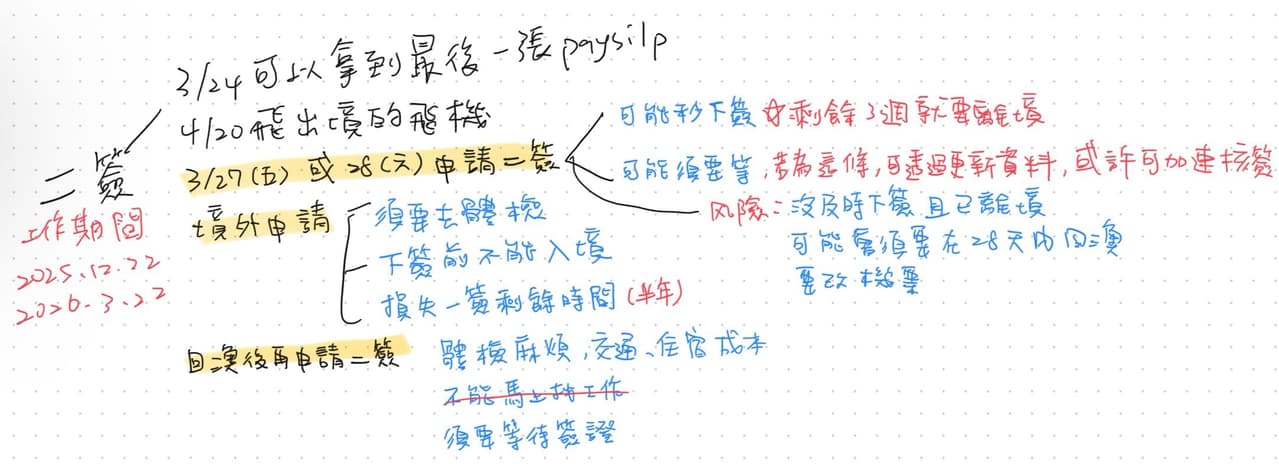 3/24 可以拿到最後一張 paysilp
4/20 飛出境的飛機
二簽
3/27(五) 或 28(六) 申請二簽
可能秒下簽 剩餘3週就要離境
可能須要等, 若為這條, 可透過更新資料, 或許可加速核簽
風險: 沒及時下簽且已離境
可能會須要在28天內回澳
要改機票
工作期間
2025.12.22
2026.3.22
境外申請
須要去體檢
下簽前不能入境
損失一簽剩餘時間 (半年)
回澳後再申請二簽
體檢麻煩, 交通、住宿成本
不能馬上找工作
須要等待簽證